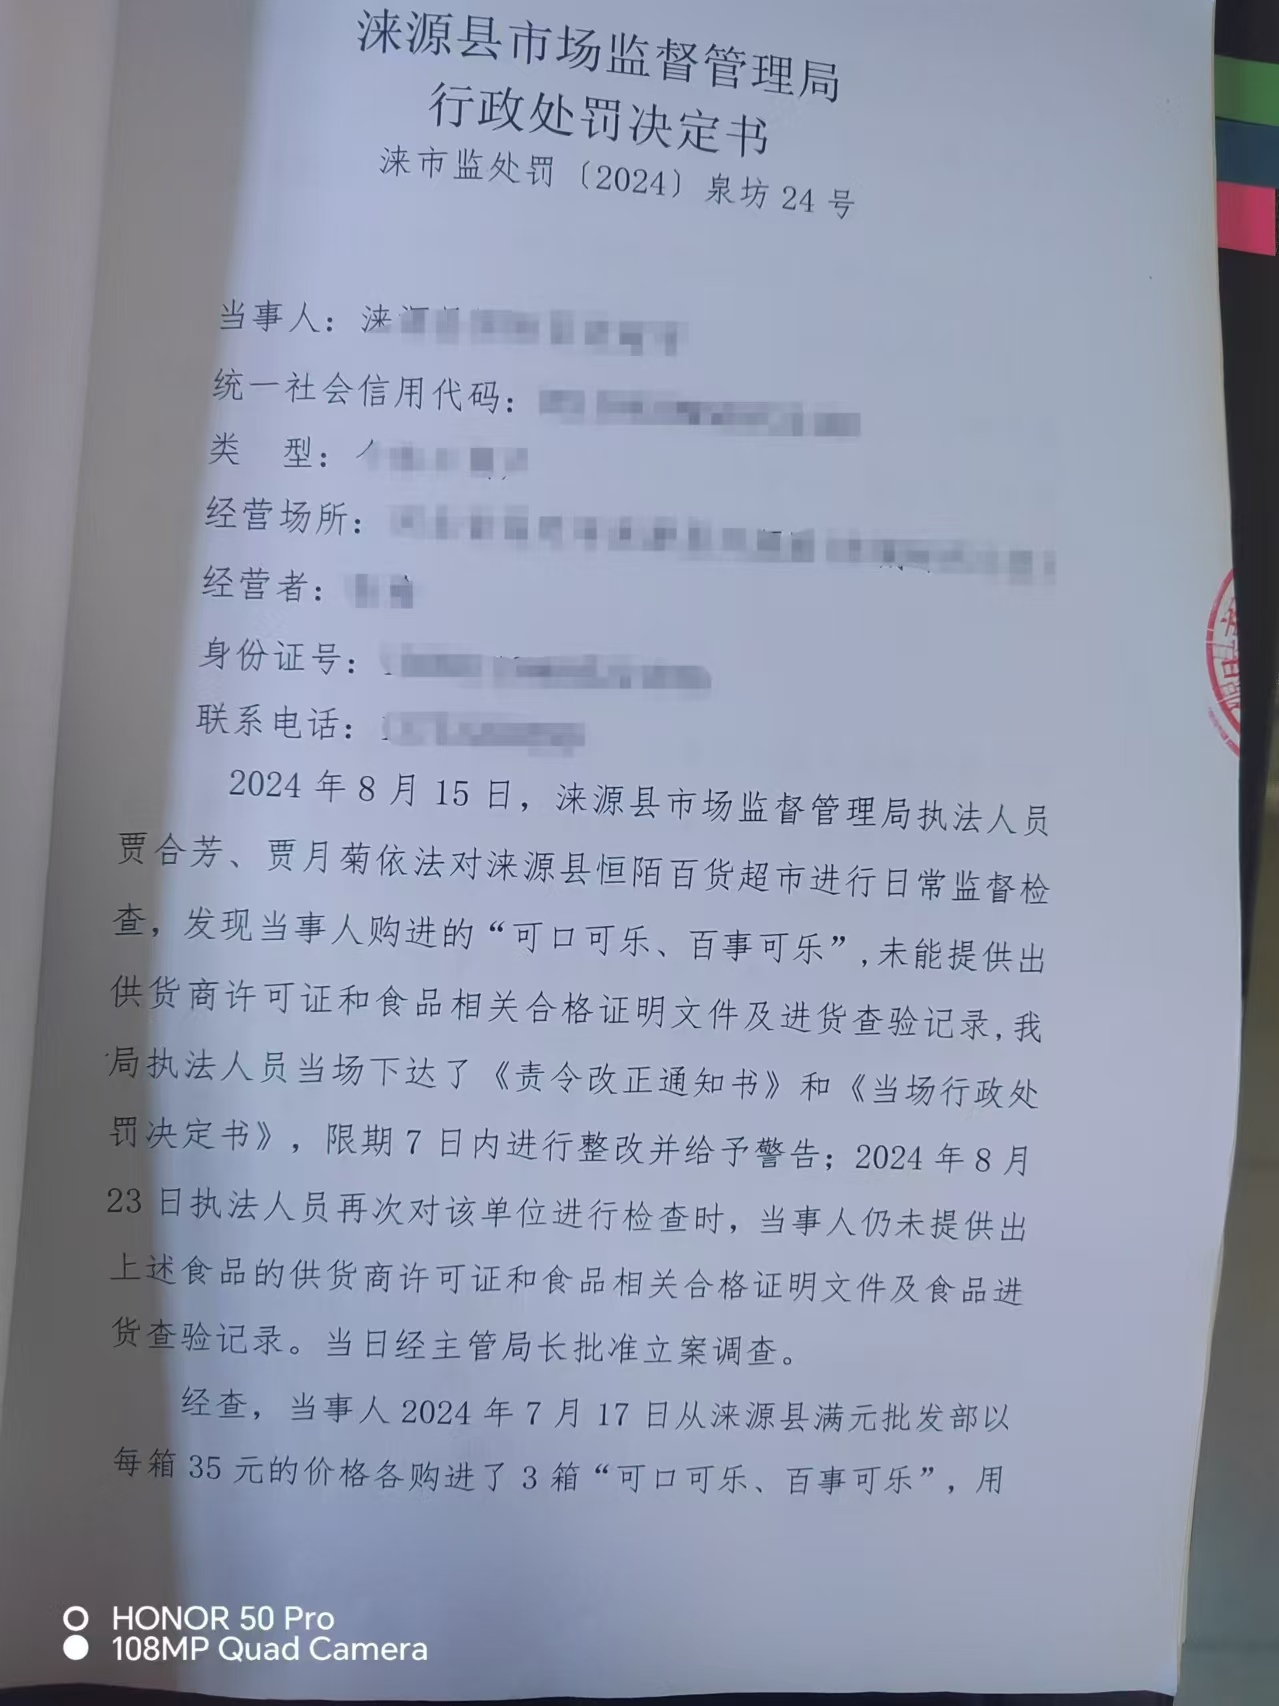 涞源县市场监督管理局
行政处罚决定书
涞市监处罚〔2024〕泉坊 24 号
当事人：涞
统一社会信用代码：
类 型：
经营场所：
经营者：
身份证号：
联系电话：
2024 年 8 月 15 日，涞源县市场监督管理局执法人员
贾合芳、贾月菊依法对涞源县恒陌百货超市进行日常监督检
查，发现当事人购进的“可口可乐、百事可乐”,未能提供出
供货商许可证和食品相关合格证明文件及进货查验记录,我
局执法人员当场下达了《责令改正通知书》和《当场行政处
罚决定书》，限期 7 日内进行整改并给予警告；2024 年 8 月
23 日执法人员再次对该单位进行检查时，当事人仍未提供出
上述食品的供货商许可证和食品相关合格证明文件及食品进
货查验记录。当日经主管局长批准立案调查。
经查，当事人 2024 年 7 月 17 日从涞源县满元批发部以
每箱 35 元的价格各购进了 3 箱“可口可乐、百事可乐”，用
HONOR 50 Pro
108MP Quad Camera